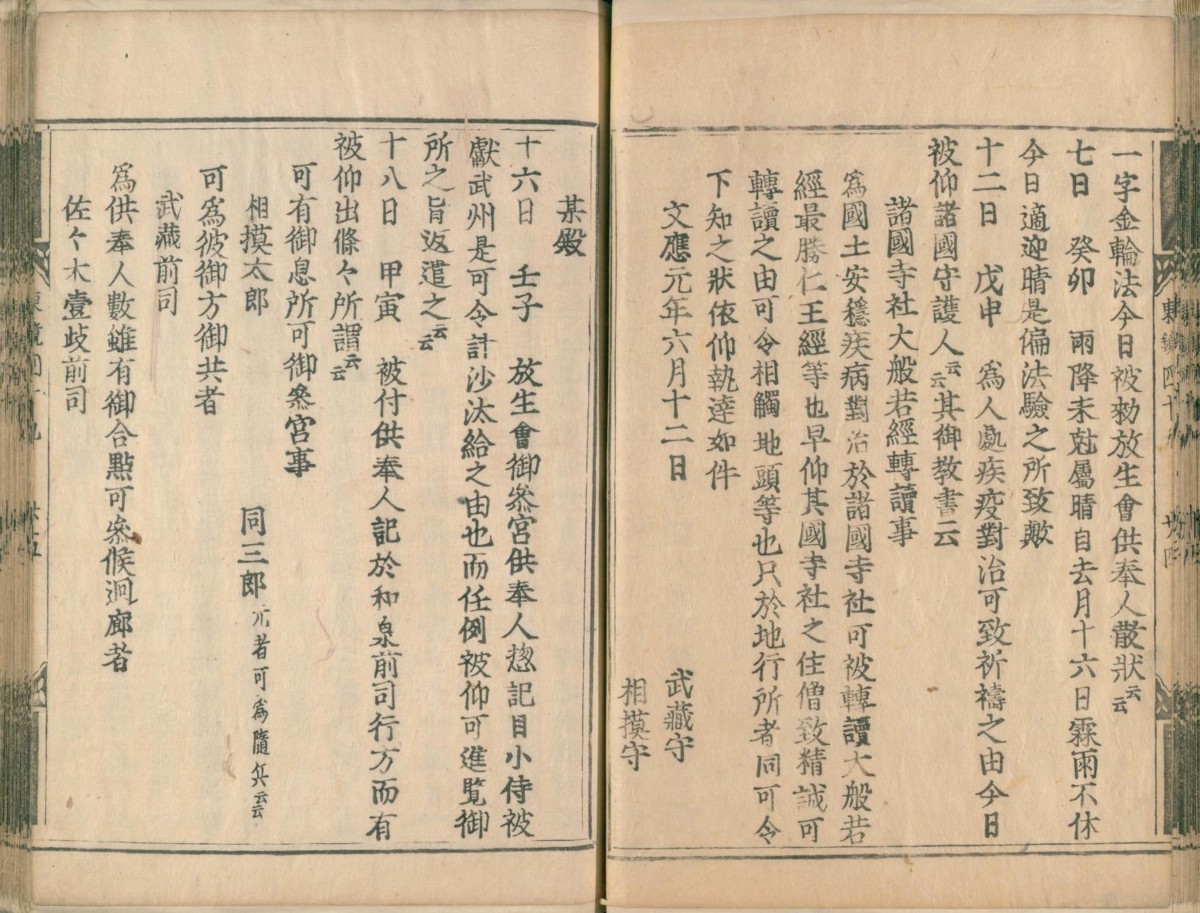 一字金輪法今日被勑放生會供奉人散狀云云
七日　癸卯　雨降未尅屬晴自去月十六日霖雨不休
今日適迎晴是偏法驗之所致歟
十二日　戊申　爲人處疾疫對治可致祈禱之由今日
被仰諸國守護人云云其御教書云
諸國寺社大般若經轉讀事
爲國土安穩疾病對治於諸國寺社可被轉讀大般若
經最勝仁王經等也早仰其國寺社之住僧致精誠可
轉讀之由可令相觸地頭等也只於地行所者同可令
下知之狀依仰執達如件
文應元年六月十二日
武藏守
相摸守
某殿
十六日　壬子　放生會御參宮供奉人惣記目小侍被
獻武州是可令計沙汰給之由也而任例被仰可進覽御
所之旨返遣之云云
十八日　甲寅　被付供奉人記於和泉前司行方而有
被仰出條々所謂云云
可有御息所可御參宮事
相摸太郎　同三郎元者可爲隨兵云云
可爲彼御方御共者
武藏前司
爲供奉人數雖有御合點可參候迴廊者
佐々木壹岐前司